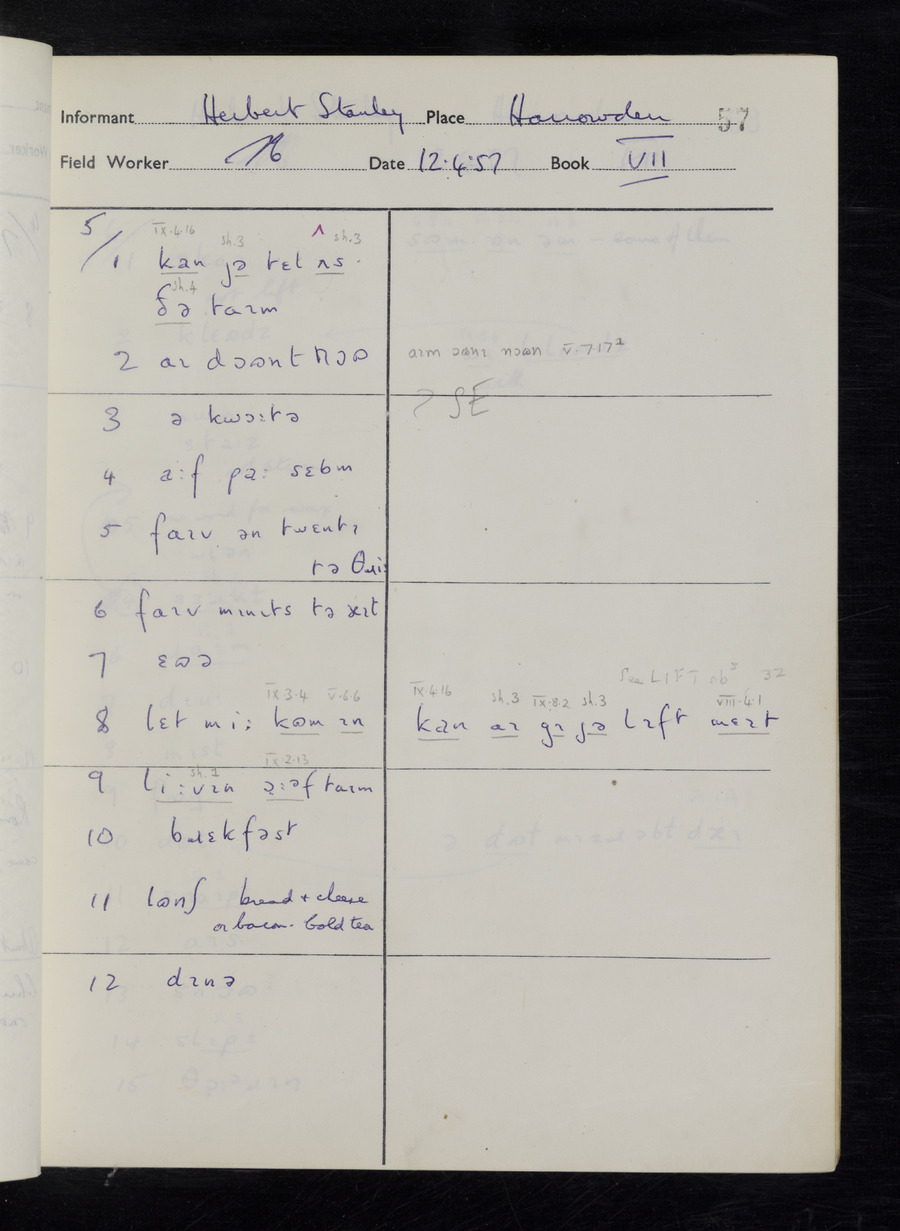 Informant Herbert Stanley Place Harrowden 57
Field Worker Date 12.4.57 Book VII
5/
IX.4.16 sh.3 ʌ sh.3
1 kan jə tɛl ʌs
sh.4
ðə taɪm
2 aɪ dɔʊnt nɔʊ
aɪm ɔʊnɪ nɔʊn V.7.17²
? SE
3 ə kwɔːtə
4 aːf paː sɛbm
5 faɪv ən twɛntɪ
tə θɹiː
6 faɪv mɪnɪts tə ɛɪt
7 ɛʊə
see LIFT vb 32
IX.3.4 V.6.6
IX.4.16 sh.3 IX.8.2 sh.3 VIII.4.1
8 lɛt miː kʊm ɪn
kan aɪ gɪ jə lɪft mɛɪt
sh.1 IX.2.13
9 liːvɪn ɔːəf taɪm
10 bɹɛkfəst
11 lʊnʃ bread + cheese
or bacon. Cold tea
12 dɪnə